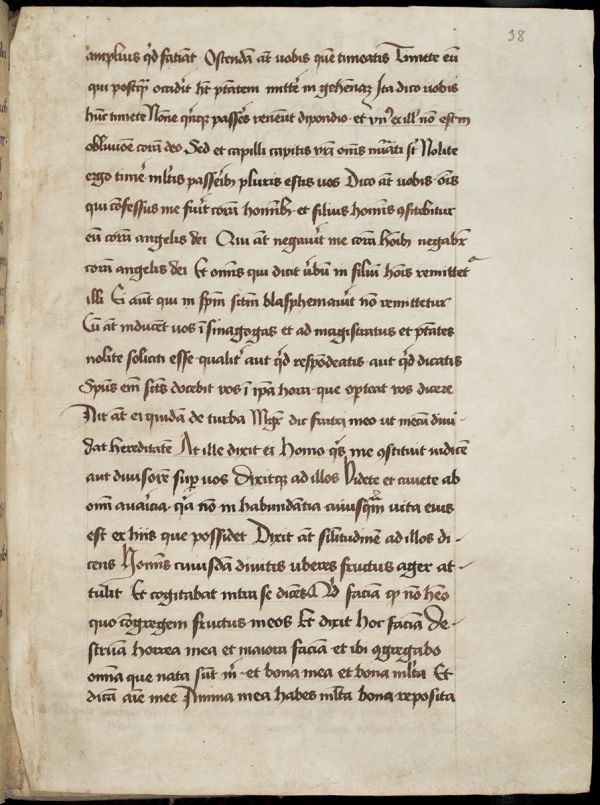 38
amplius qd faciāt Ostendā aūt uobis quē timeatis Timete eū
qui postqȝ occidit ht ptātem mitte in gehennaȝ Ita dico uobis
hūc timete Nōne qinqȝ passes veneūt dipondio et vnꝰ ex ill' nō est in
obliuiōe corā deo Sed et capilli capitis vrī oms nūati st Nolite
ergo time mltis passeribȝ pluris estis uos Dico aūt uobis ōis
qui cōfessus me fuit corā hominibȝ et filius homis ꝯfitebitur
eū corā angelis dei Qui aūt negauit me corā hoībȝ negabr
corā angelis dei Et omis qui dicit ūbū in filiū hoīs remittet
illi Ei aūt qui in spm sctm blasphemauit nō remittetur
Cū aūt inducent uos ī sinagogas et ad magistratus et ptātes
nolite soliciti esse qualit aut qd respōdeatis aut qd dicatis
Spūs em scts docebit vos ī ipā hora que opteat vos dicere
Ait aūt ei quidā de turba Mgr dic fratri meo ut mecū diui
dat hereditatē At ille dixit ei Homo qs me ꝯstituit iudicē
aut diuisorē supr uos Dixitqȝ ad illos Videte et cauete ab
omi auaricia qa nō in habundātia cuiusqȝ vita eius
est ex hiis que possidet Dixit aūt silitudinē ad illos di
cens Homīs cuiusdā diuitis uberes fructus ager at
tulit Et cogitabat intra se dicēs Qd faciā qȝ nō heo
quo cōgregem fructus meos Et dixit hoc faciā de
struā horrea mea et maiora faciā et ibi ꝯgregabo
omīa que nata sūt m et bona mea et bona mlta Et
dicā aīe mee Anima mea habes mlta bona reposita